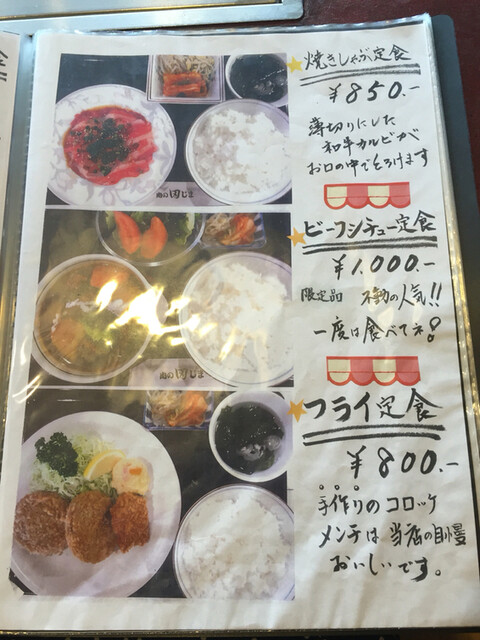 焼きしゃぶ定食
¥850.-
薄切りにした
和牛カルビが
お口の中でとろけます
肉の田じま
ビーフシチュー定食
¥1,000.-
限定品 不動の人気!!
一度は食べてネ!
肉の田じま
フライ定食
¥800.-
手作りのコロッケ
メンチは当店の自慢
おいしいです。